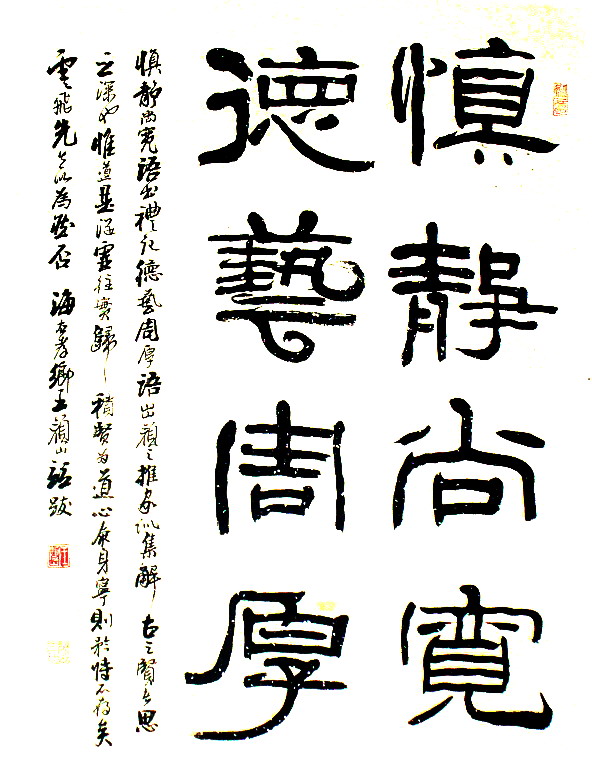 慎靜尚寬
德藝周厚
慎靜尚寬語出禮記德藝周厚語出顏之推家訓集解古之賢者思
之深也惟道是從虛往實歸積賢為道心身寧則於時不存矣
雲飛先生以為然否海右孝鄉王顏山話跋